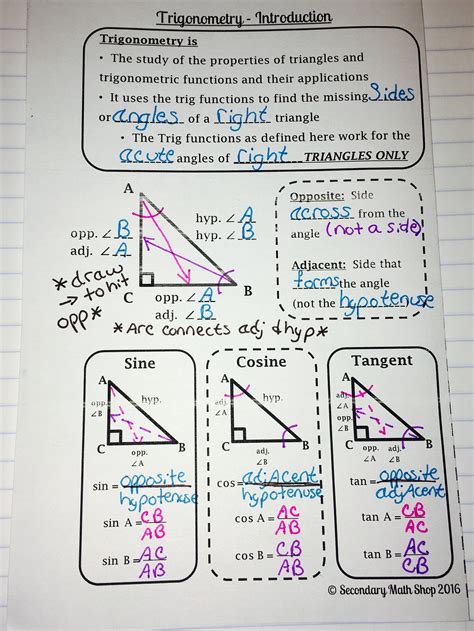 Trigonometry - Introduction
Trigonometry is
• The study of the properties of triangles and
trigonometric functions and their applications
• It uses the trig functions to find the missing sides
or angles of a right triangle
• The Trig functions as defined here work for the
acute angles of right TRIANGLES ONLY
A
opp. ∠ B
adj. ∠ A
hyp. ∠ A
hyp. ∠ B
C
B
opp. ∠ A
adj. ∠ B
*draw
→ to hit
opp*
*Arc connects adj & hyp*
Opposite: Side
across from the
angle (not a side)
Adjacent: Side that
forms the angle
(not the hypotenuse)
Sine
A
opp.
∠B
hyp.
C
B
opp.
∠A
sin = opposite
hypotenuse
sin A = CB
AB
sin B = AC
AB
Cosine
A
adj.
∠A
hyp.
C
B
adj.
∠B
cos = adjAcent
hypotenuse
cos A = AC
AB
cos B = CB
AB
Tangent
A
adj.
∠A
opp.
∠B
C
B
opp. adj.
∠A ∠B
tan = opposite
adjAcent
tan A = CB
AC
tan B = AC
CB
© Secondary Math Shop 2016